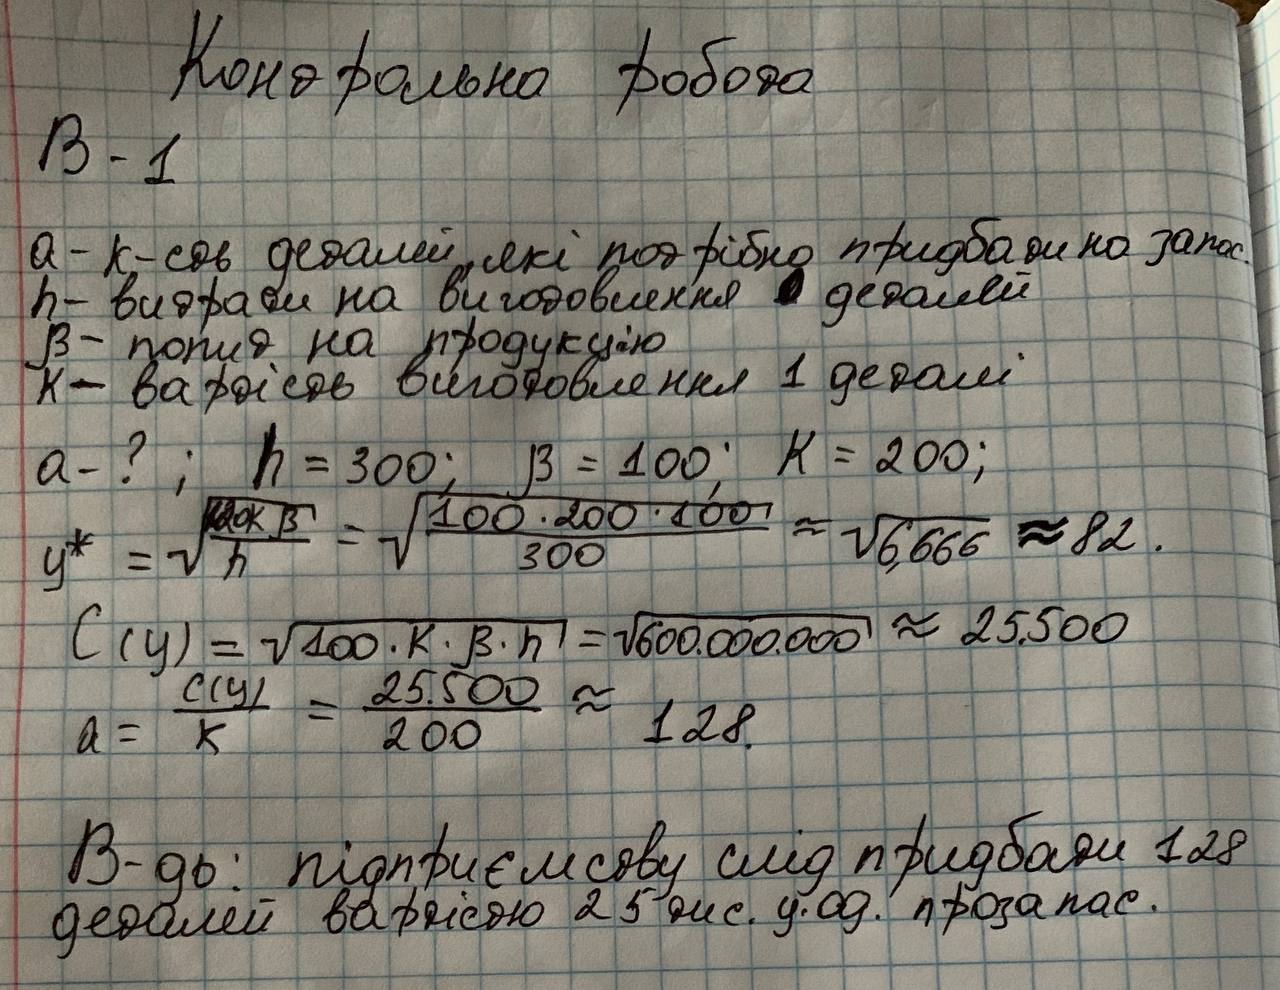 Контрольна робота
В-1
a - к-сть деталей, які потрібно придбати на запас.
h - витрати на виготовлення деталей
β - попит на продукцію
K - вартість виготовлення 1 деталі
a - ? ; h = 300; β = 100; K = 200;
y* = √(Kβ/h) = √(100·200·100/300) ≈ √6,666 ≈ 82.
C(y) = √(100·K·β·h) = √600.000.000 ≈ 25.500
a = C(y)/K = 25.500/200 ≈ 128.
В-дь: підприємству слід придбати 128
деталей вартістю 25 тис. у.од. про запас.